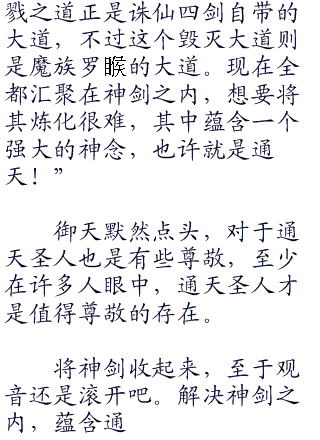 戮之道正是诛仙四剑自带的
大道，不过这个毁灭大道则
是魔族罗睺的大道。现在全
都汇聚在神剑之内，想要将
其炼化很难，其中蕴含一个
强大的神念，也许就是通
天！”
御天默然点头，对于通
天圣人也是有些尊敬，至少
在许多人眼中，通天圣人才
是值得尊敬的存在。
将神剑收起来，至于观
音还是滚开吧。解决神剑之
内，蕴含通